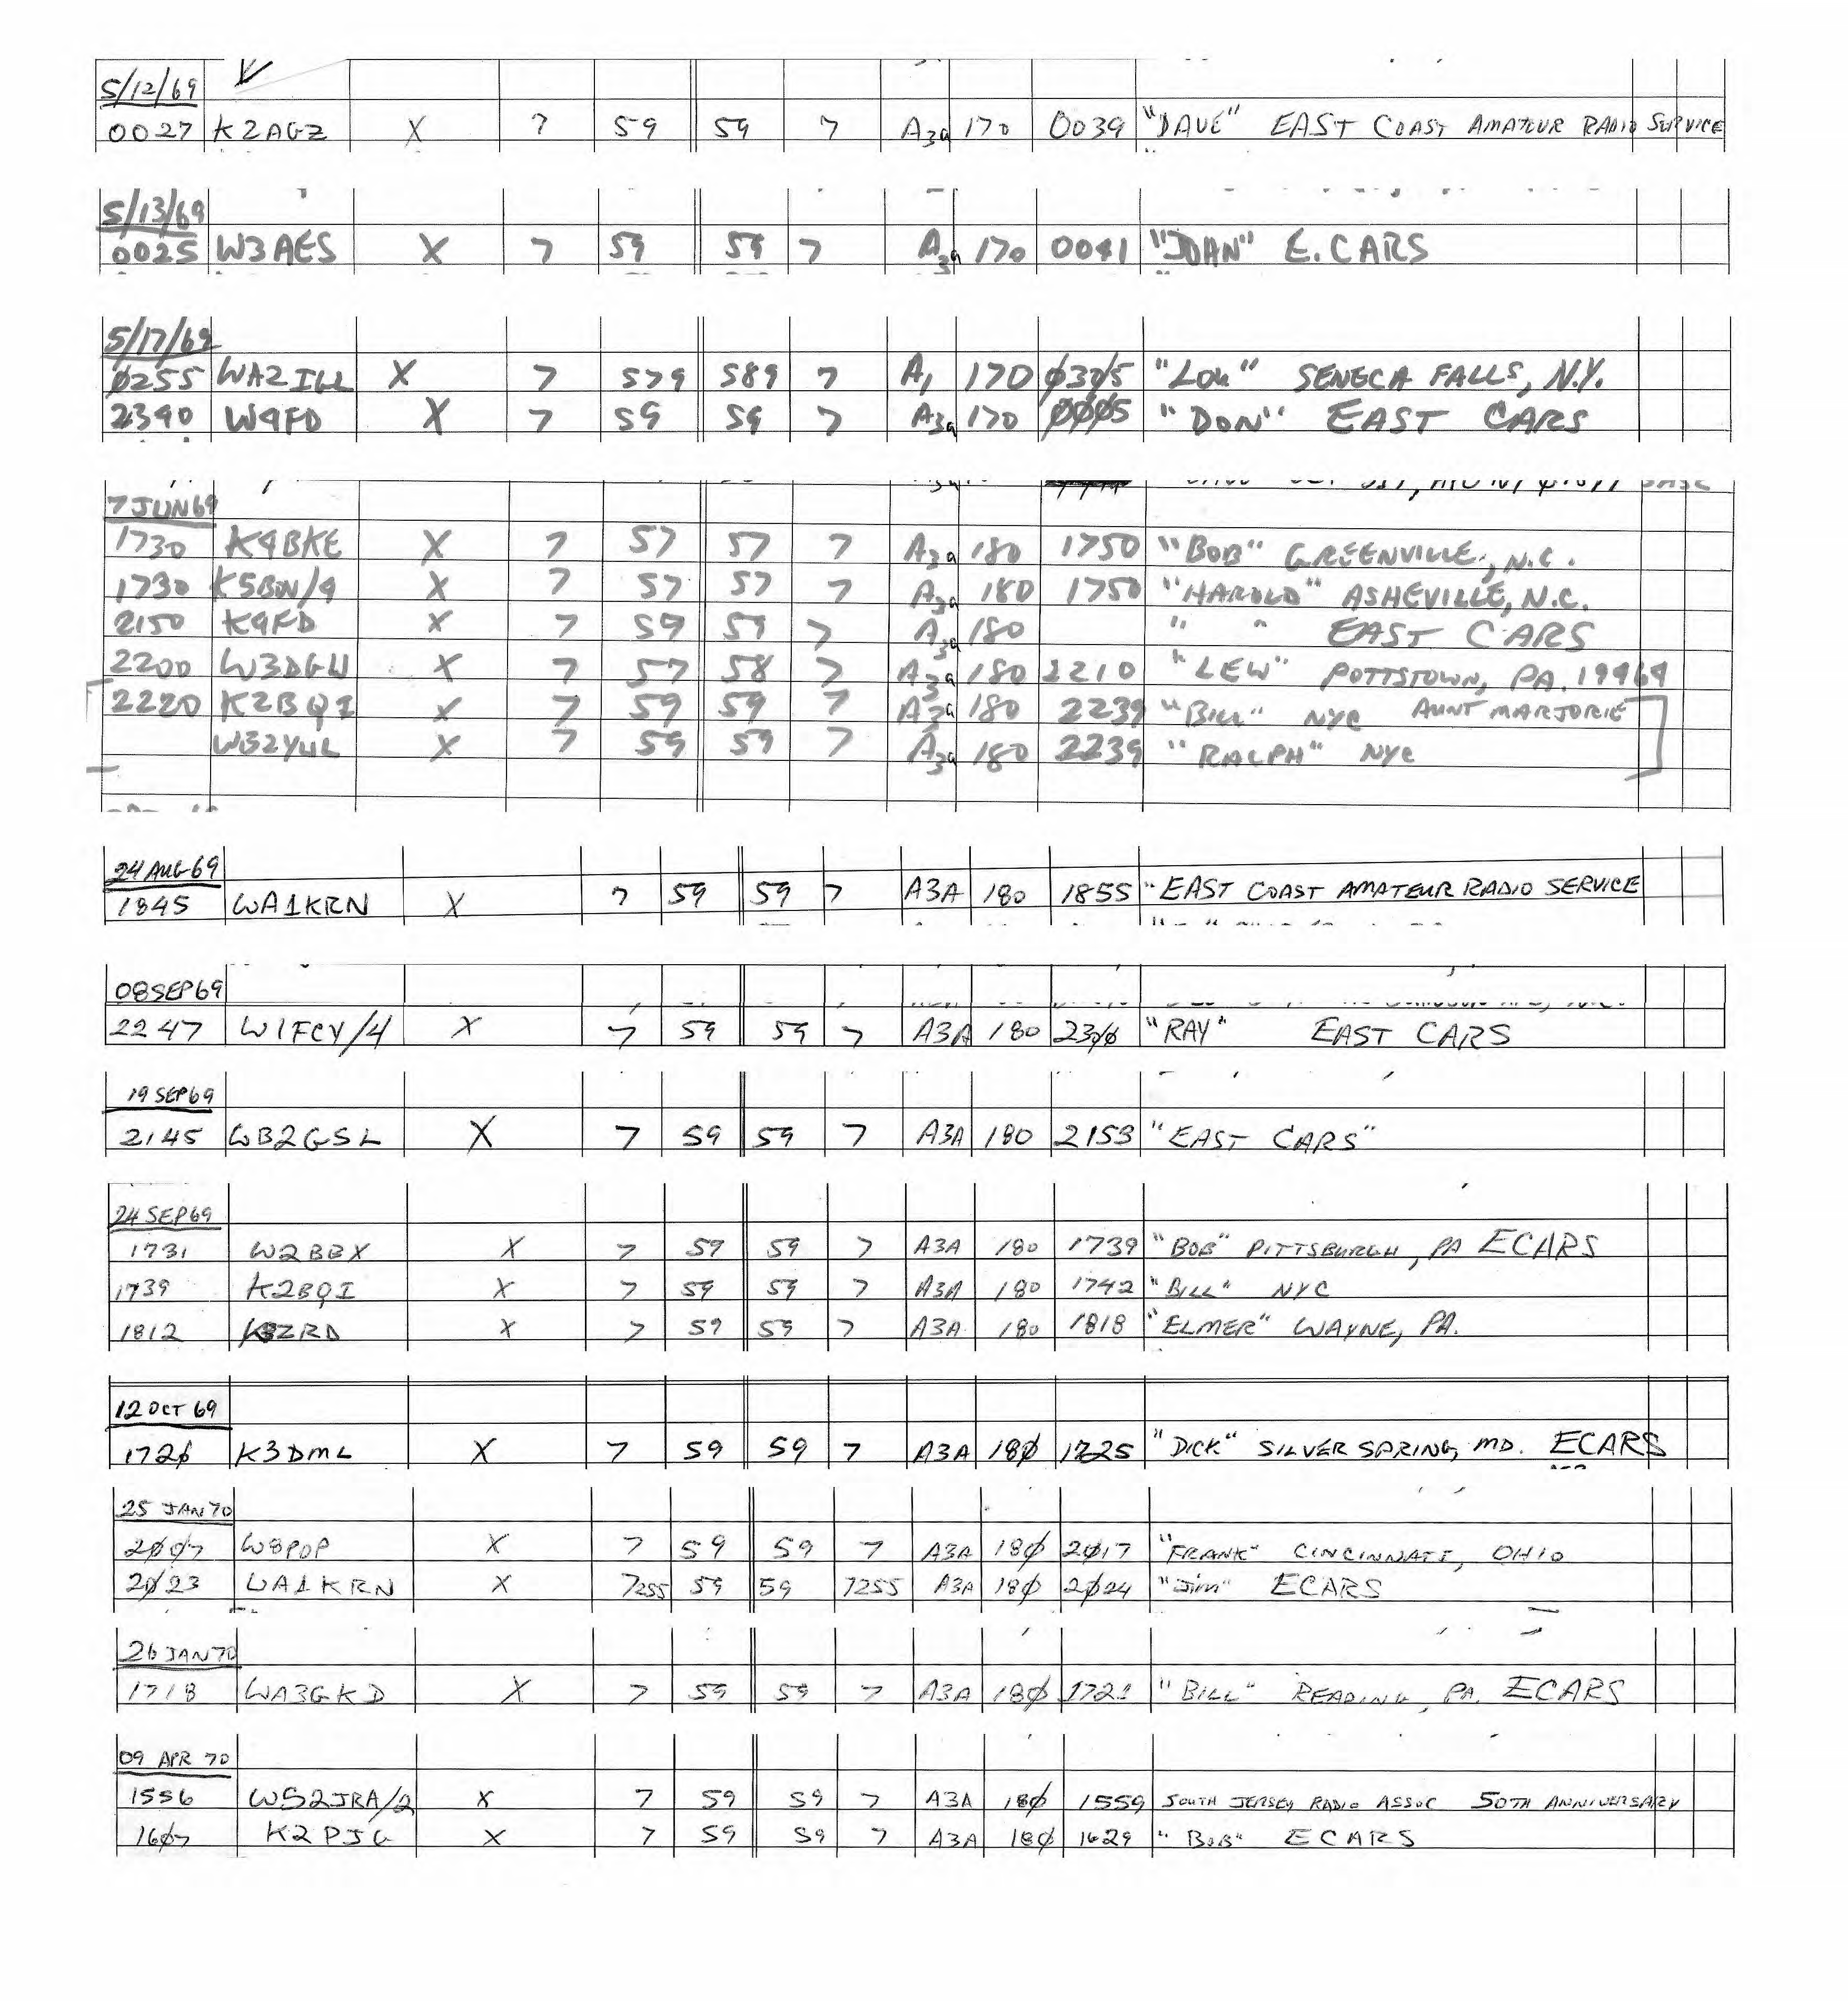 5/12/69
0027 K2AGZ X 7 59 59 7 A3a 170 0039 "DAVE" EAST COAST AMATEUR RADIO SERVICE
5/13/69
0025 W3AES X 7 59 59 7 A3a 170 0041 "JOHN" E. CARS
5/17/69
Ø255 WA2IGL X 7 579 589 7 A1 170 Ø3Ø5 "LOU" SENECA FALLS, N.Y.
2340 W4FD X 7 59 59 7 A3a 170 ØØØ5 "DON" EAST CARS
7 JUN 69
1730 K4BKE X 7 57 57 7 A3a 180 1750 "BOB" GREENVILLE, N.C.
1730 K5BW/4 X 7 57 57 7 A3a 180 1750 "HAROLD" ASHEVILLE, N.C.
2150 K4FD X 7 59 59 7 A3a 180 " " EAST CARS
2200 W3DGU X 7 57 58 7 A3a 180 2210 "LEW" POTTSTOWN, PA. 19464
2220 K2BQI X 7 59 59 7 A3a 180 2239 "BILL" NYC AUNT MARJORIE
X 7 59 59 7 A3a 180 2239 "RALPH" NYC
24 AUG 69
1845 WA1KRN X 7 59 59 7 A3A 180 1855 "EAST COAST AMATEUR RADIO SERVICE
08 SEP 69
2247 W1FCY/4 X 7 59 59 7 A3A 180 23ØØ "RAY" EAST CARS
19 SEP 69
2145 WB2GSL X 7 59 59 7 A3A 180 2153 "EAST CARS"
24 SEP 69
1731 W2BBX X 7 59 59 7 A3A 180 1739 "BOB" PITTSBURGH, PA ECARS
1739 K2BQI X 7 59 59 7 A3A 180 1742 "BILL" NYC
1812 X 7 59 59 7 A3A 180 1818 "ELMER" WAYNE, PA.
12 OCT 69
172Ø K3DML X 7 59 59 7 A3A 18Ø 1725 "DICK" SILVER SPRING, MD. ECARS
25 JAN 70
2ØØ7 W8PDP X 7 59 59 7 A3A 18Ø 2Ø17 "FRANK" CINCINNATI, OHIO
2Ø23 WA1KRN X 7255 59 59 7255 A3A 18Ø 2Ø24 "Jim" ECARS
26 JAN 70
1718 WA3GKD X 7 59 59 7 A3A 18Ø 1721 "BILL" READING, PA. ECARS
09 APR 70
1556 WS2JRA/2 X 7 59 59 7 A3A 18Ø 1559 SOUTH JERSEY RADIO ASSOC 50TH ANNIVERSARY
16Ø7 K2PJG X 7 59 59 7 A3A 18Ø 1629 "BOB" ECARS